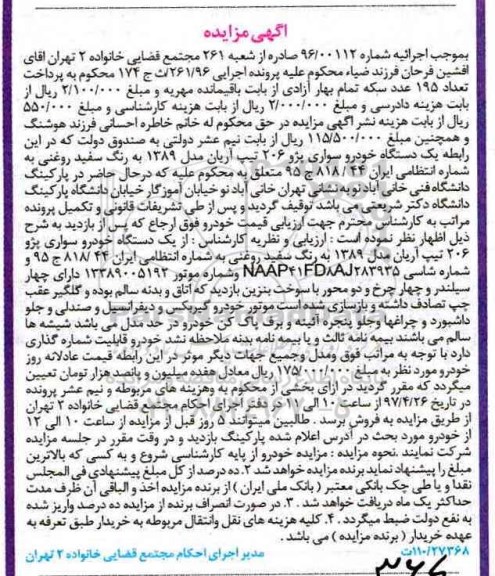 آگهی مزایده
بموجب اجرائیه شماره ۹۶/۰۰۱۱۲ صادره از شعبه ۲۶۱ مجتمع قضایی خانواده ۲ تهران آقای
افشین فرحان فرزند ضیاء محکوم علیه پرونده اجرایی ۲۶۱/۹۶/ث ج ۱۷۴ محکوم به پرداخت
تعداد ۱۹۵ عدد سکه تمام بهار آزادی از بابت باقیمانده مهریه و مبلغ ۲/۱۰۰/۰۰۰ ریال از
بابت هزینه دادرسی و مبلغ ۲/۰۰۰/۰۰۰ ریال از بابت هزینه کارشناسی و مبلغ ۵۵۰/۰۰۰
ریال از بابت هزینه نشر آگهی مزایده در حق محکوم له خانم خاطره احسانی فرزند هوشنگ
و همچنین مبلغ ۱۱۵/۵۰۰/۰۰۰ ریال از بابت نیم عشر دولتی به صندوق دولت که در این
رابطه یک دستگاه خودرو سواری پژو ۲۰۶ تیپ آریان مدل ۱۳۸۹ به رنگ سفید روغنی به
شماره انتظامی ایران ۴۴ / ۸۱۸ ج ۹۵ متعلق به محکوم علیه که درحال حاضر در پارکینگ
دانشگاه فنی خانی آباد نو به نشانی تهران خانی آباد نو خیابان آموزگار خیابان دانشگاه پارکینگ
دانشگاه دکتر شریعتی می باشد توقیف گردید و پس از طی تشریفات قانونی و تکمیل پرونده
مراتب به کارشناس محترم جهت ارزیابی قیمت خودرو فوق ارجاع که پس از بازدید به شرح
ذیل اظهار نظر نموده است : ارزیابی و نظریه کارشناس : از یک دستگاه خودرو سواری پژو
۲۰۶ تیپ آریان مدل ۱۳۸۹ به رنگ سفید روغنی به شماره انتظامی ایران ۴۴ /۸۱۸ ج ۹۵ و
شماره شاسی NAAP۴۱FD۸AJ۲۸۳۹۳۵ وشماره موتور ۱۳۳۸۹۰۰۵۱۹۲ دارای چهار
سیلندر و چهار چرخ و دو محور با سوخت بنزین بازدید که اتاق و بدنه سالم بوده و گلگیر عقب
چپ تصادف داشته و بازسازی شده است موتور خودرو گیربکس و دیفرانسیل و صندلی و جلو
داشبورد و چراغها وجلو پنجره آئینه و برف پاک کن خودرو در حد مدل می باشد شیشه ها
سالم می باشند بیمه نامه ثالث و یا بیمه نامه بدنه ملاحظه نشد خودرو قابلیت شماره گذاری
دارد با توجه به مراتب فوق ومدل وجمیع جهات دیگر موثر در این رابطه قیمت عادلانه روز
خودرو مورد نظر به مبلغ ۱۷۵/۰۰۰/۰۰۰ ریال معادل هفده میلیون و پانصد هزار تومان تعیین
میگردد که مقرر گردید در ازای بخشی از محکوم به وهزینه های مربوطه و نیم عشر پرونده
در تاریخ ۹۷/۴/۲۶ از ساعت ۱۰ الی ۱۲ در دفتر اجرای احکام مجتمع قضایی خانواده ۲ تهران
از طریق مزایده به فروش برسد . طالبین میتوانند ۵ روز قبل از مزایده از ساعت ۱۰ الی ۱۲
از خودرو مورد بحث در آدرس اعلام شده پارکینگ بازدید و در وقت مقرر در جلسه مزایده
شرکت نمایند .نحوه مزایده : مزایده خودرو از پایه کارشناسی شروع و به کسی که بالاترین
مبلغ را پیشنهاد نماید برنده مزایده خواهد شد ۲. ده درصد از کل مبلغ پیشنهادی فی المجلس
نقدا و یا طی چک بانکی معتبر ( بانک ملی ایران ) از برنده مزایده اخذ و الباقی آن ظرف مدت
حداکثر یک ماه دریافت خواهد شد . ۳. در صورت انصراف برنده از مزایده ده درصد واریز شده
به نفع دولت ضبط میگردد . ۴. کلیه هزینه های نقل وانتقال مربوطه به خریدار طبق تعرفه به
عهده خریدار ( برنده مزایده ) می باشد .
۱۱۰/۲۷۳۶۸ث مدیر اجرای احکام مجتمع قضایی خانواده ۲ تهران